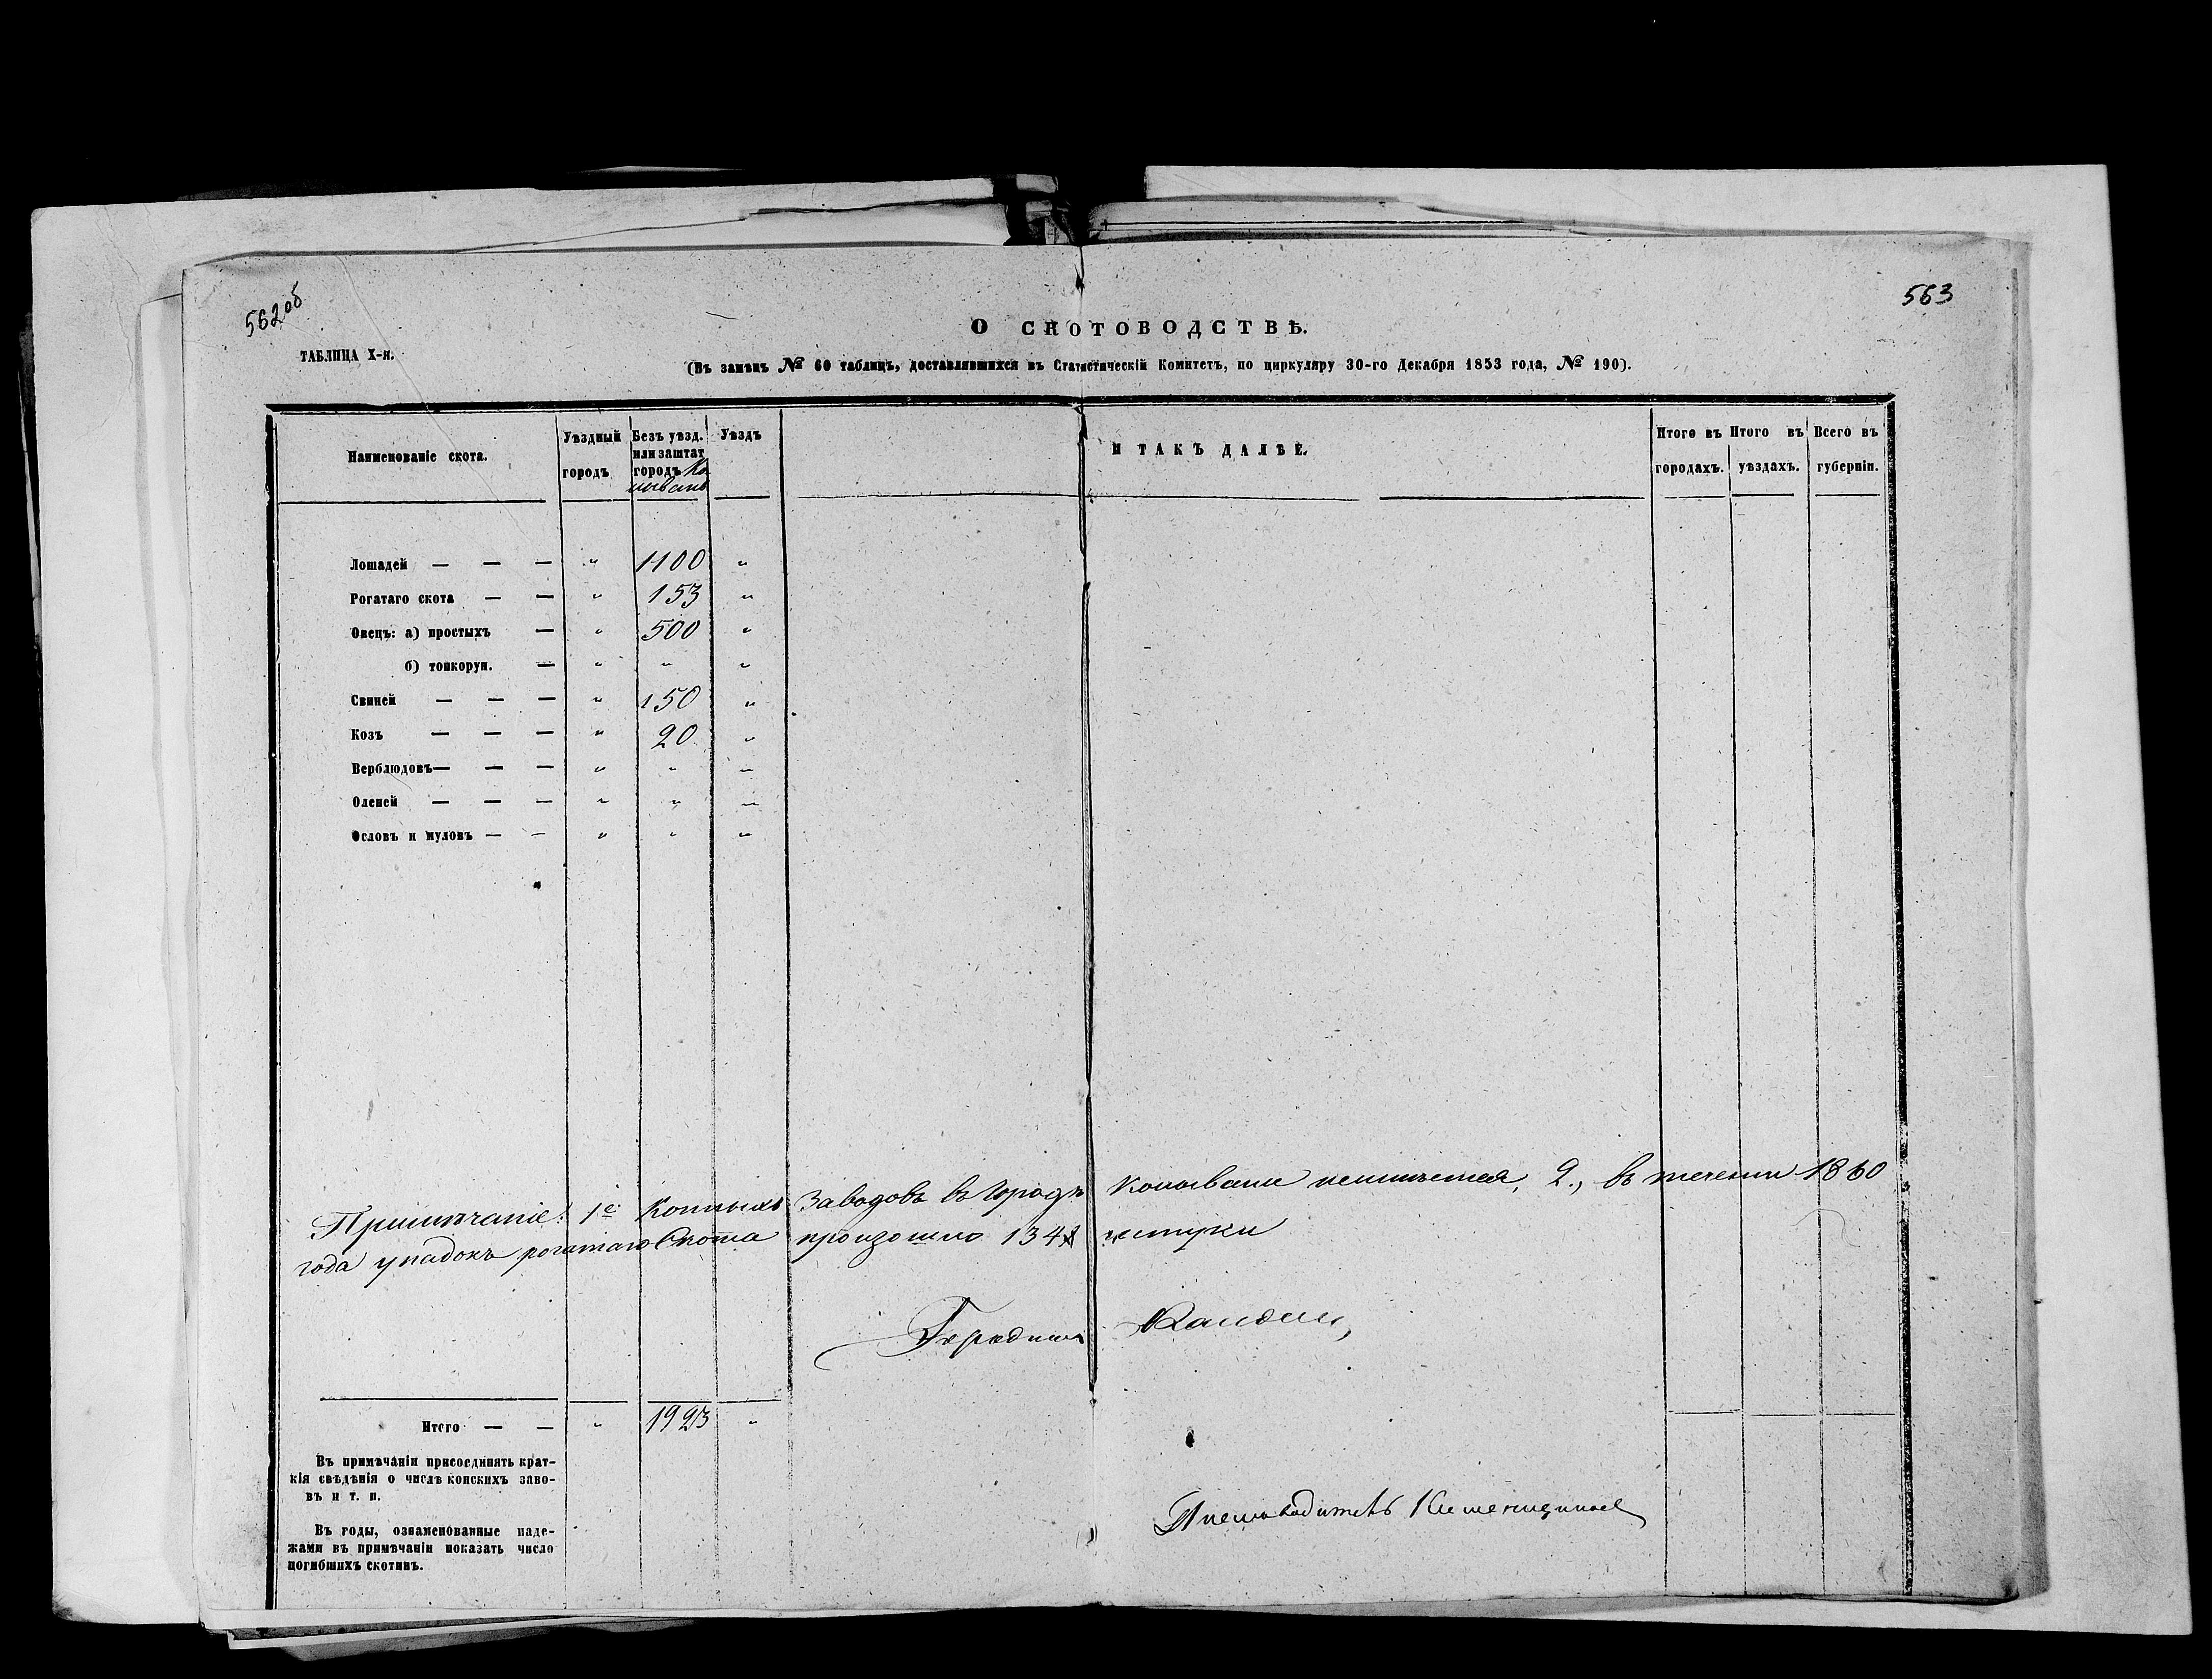 562об
563
О СКОТОВОДСТВѢ.
ТАБЛИЦА X-я.
(Въ замѣнъ № 60 таблицъ, доставлявшихся въ Статистическій Комитетъ, по циркуляру 30-го Декабря 1853 года, № 190).
Наименованіе скота. Уѣздный городъ Безъ уѣзд. или заштат городъ Колывань Уѣздъ И ТАКЪ ДАЛѢЕ. Итого въ городахъ. Итого въ уѣздахъ. Всего въ губерніи.
Лошадей — — — „ 1100 „
Рогатаго скота — — „ 153 „
Овецъ: а) простыхъ — „ 500 „
б) тонкорун. — „ „ „
Свиней — — — „ 150 „
Козъ — — — „ 20 „
Верблюдовъ — — — „ „ „
Оленей — — — „ „ „
Ословъ и муловъ — — „ „ „
Примѣчаніе: 1е Конныхъ Заводовъ въ Городѣ Колывани неимѣется, 2., въ течении 1860
года упадокъ рогатаго Скота произошло 134 штуки
Итого — — „ 1923 „
Въ примѣчаніи присоединять крат-
кія свѣдѣнія о числѣ конскихъ заво-
въ и т. п.
Въ годы, ознаменованные паде-
жами въ примѣчаніи показать число
погибшихъ скотинъ.
Письмоводитель